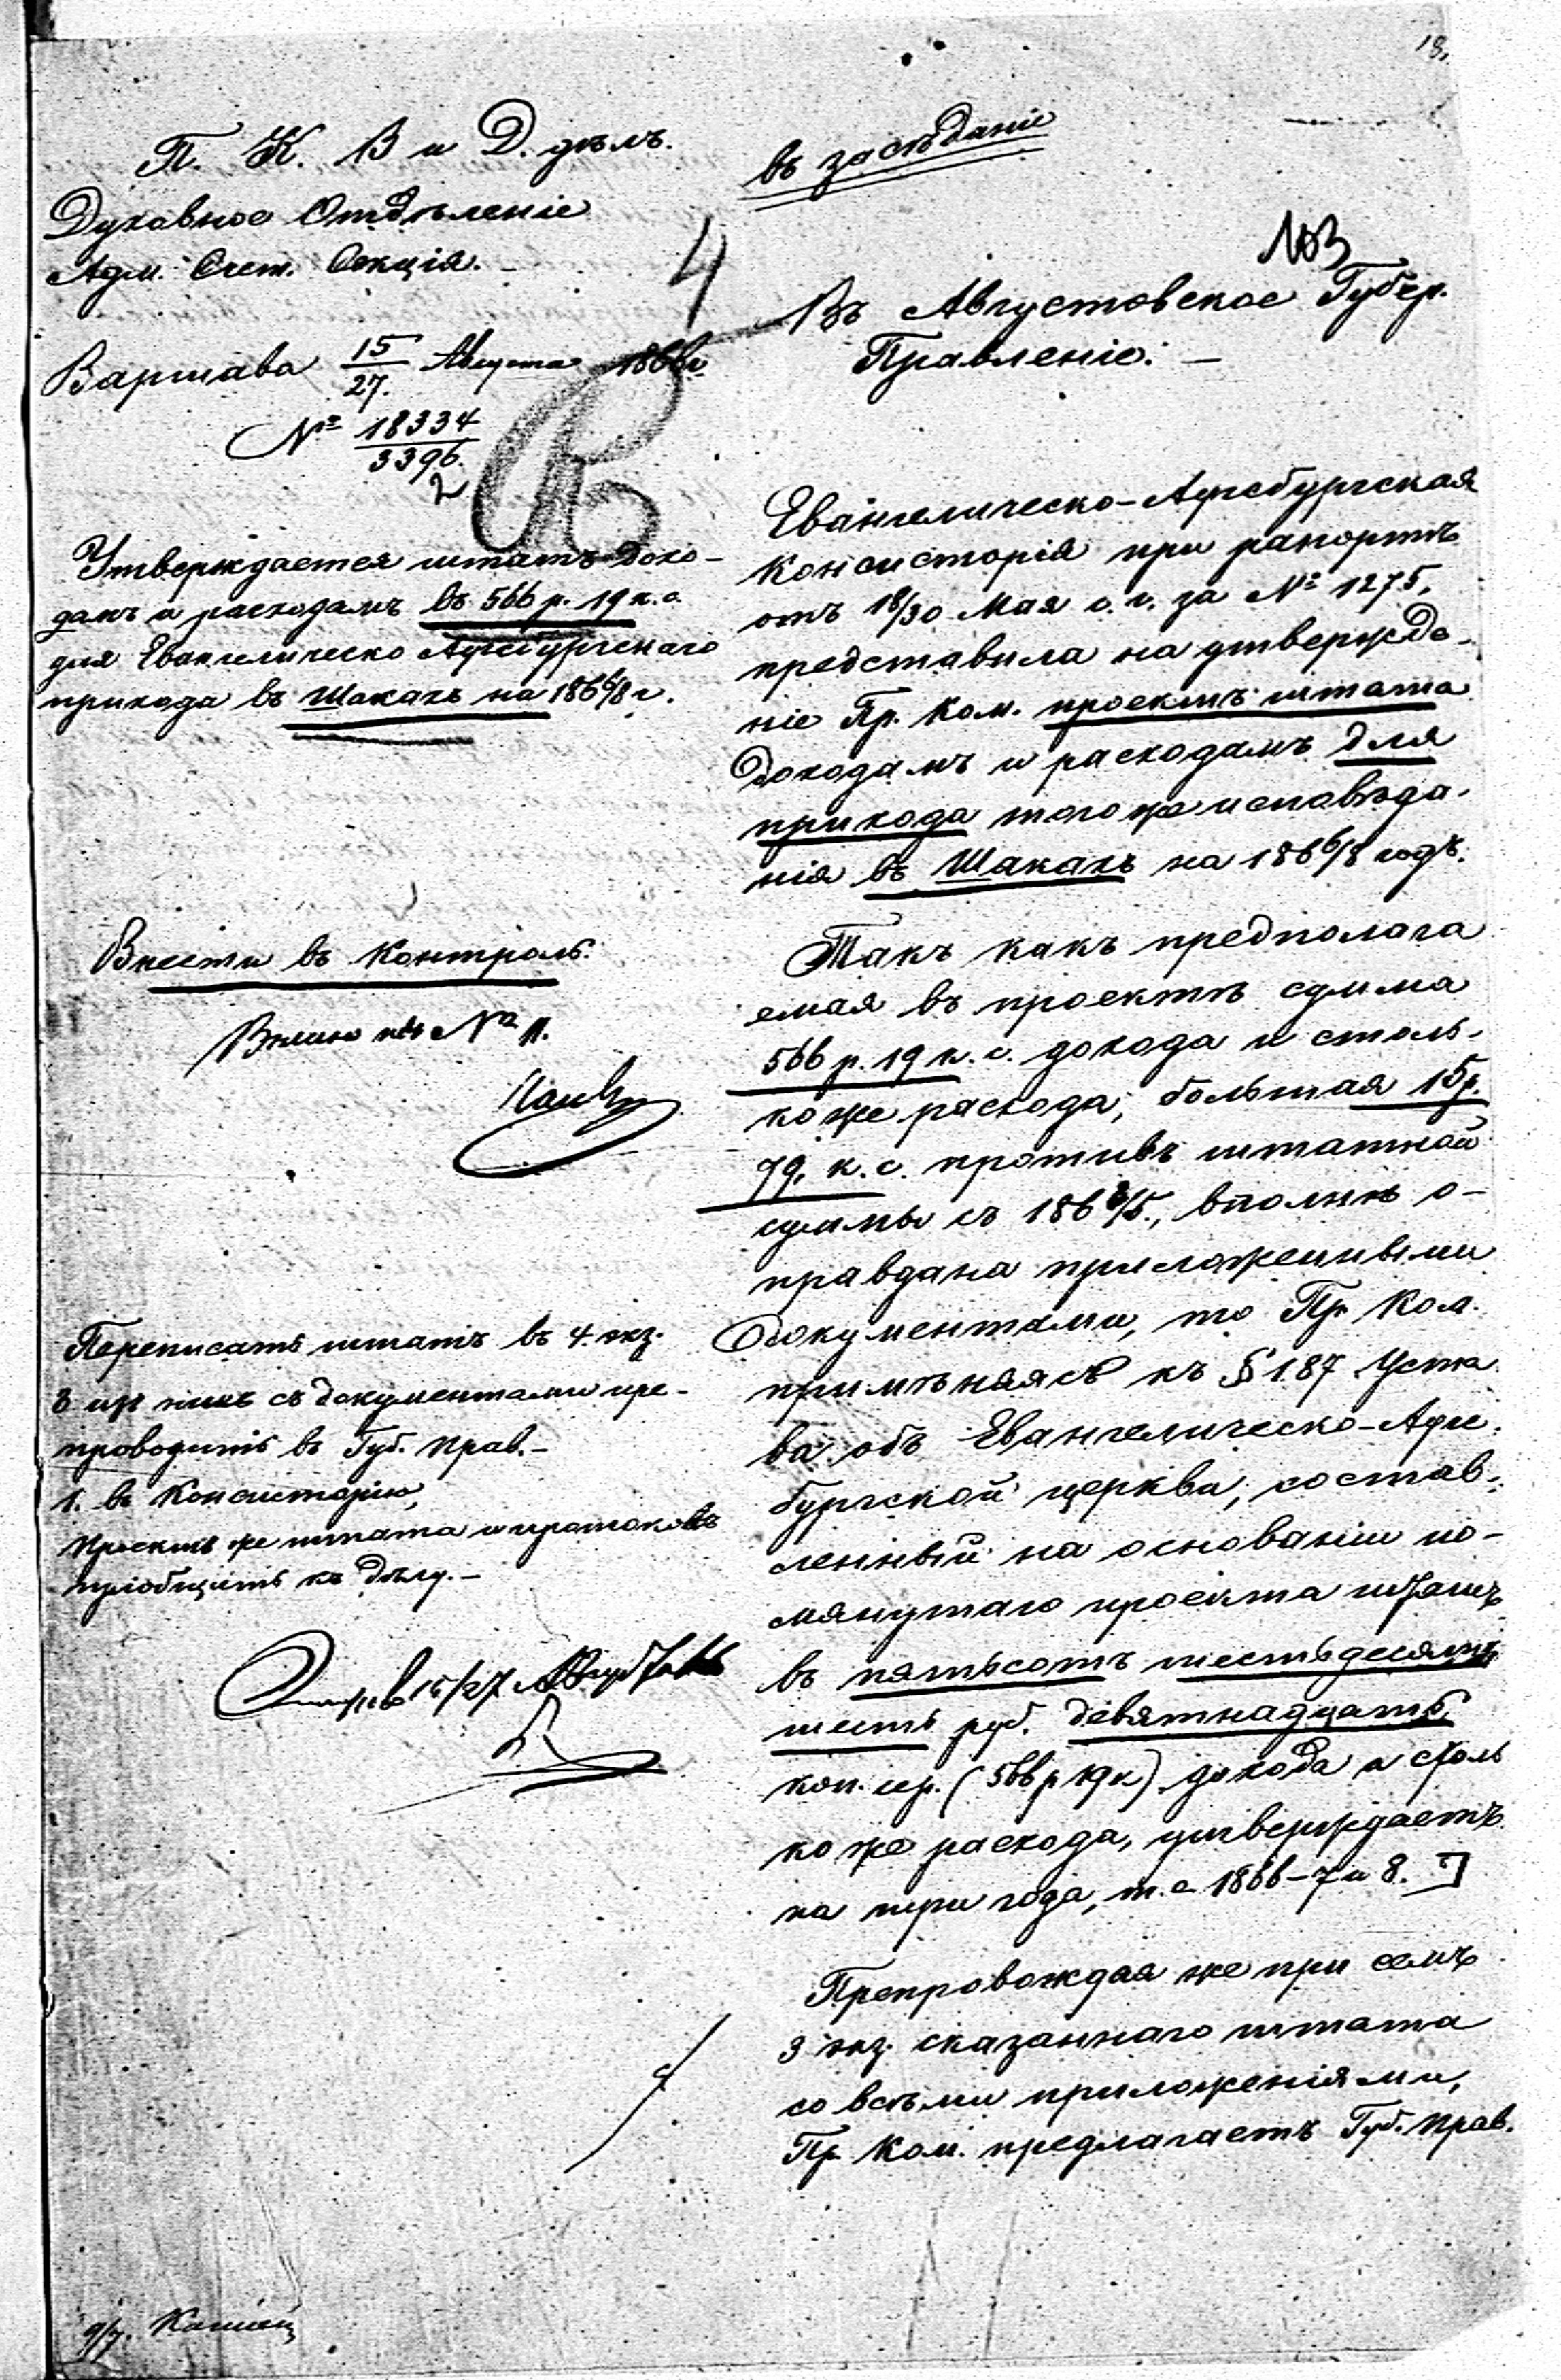 18.
П. К. В и Д. дѣлъ.
Духовное Отдѣленіе
Адм. Счет. Секція. -
Варшава 15/27. Августа 1866 г
№ 18334/3396.
2
Утверждается штатъ дохо-
дамъ и расходамъ въ 566 р. 19 к. с.
для Евангелическо Аугсбургскаго
прихода въ Шакахъ на 1866/8 г.
Внести въ Контроль.
№ 11.
Переписать штатъ въ 4. экз.
3 изъ нихъ съ документами пре-
проводить въ Губ. Прав. -
1. въ Консисторію,
Проектъ же штата и протоколъ
пріобщить къ дѣлу. -
15/27
9/7.
въ засѣданіе
4
103
Въ Августовское Губер.
Правленіе. -
Евангелическо-Аугсбургская
Консисторія при рапортѣ
отъ 18/30 Мая с. г. за № 1275,
представила на утвержде-
ніе Пр. Ком. проектъ штата
доходамъ и расходамъ для
прихода того же исповѣда-
нія въ Шакахъ на 1866/8 годъ.
Такъ какъ предполага
емая въ проектѣ сумма
566 р. 19 к. с. дохода и столь-
ко же расхода, большая 15 р.
79, к. с. противъ штатной
суммы съ 1863/5., вполнѣ о-
правдана приложенными
документами, то Пр. Ком.
примѣняясь къ § 187 Уста
ва объ Евангелическо-Аугс-
бургской церкви, состав-
ленный на основаніи по-
мянутаго проекта штатъ
въ пятьсотъ шестьдесятъ
шесть руб. девятнадцать
коп. сер. (566 р 19 к) дохода и столь
ко же расхода, утверждаетъ
на три года, т. е 1866-7 и 8.
Препровождая же при семъ
3 экз. сказаннаго штата
со всѣми приложеніями,
Пр. Ком. предлагаетъ Губ. Прав.